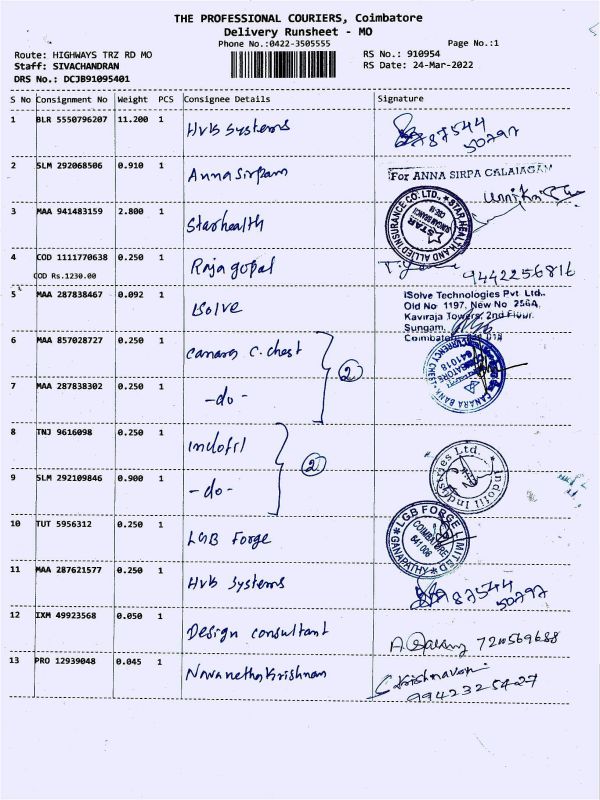 THE PROFESSIONAL COURIERS, Coimbatore
Delivery Runsheet - MO
Phone No.:0422-3505555
Page No.:1
Route: HIGHWAYS TRZ RD MO
RS No.: 910954
Staff: SIVACHANDRAN
RS Date: 24-Mar-2022
DRS No.: DCJB91095401
S No Consignment No Weight PCS Consignee Details Signature
1 BLR 5550796207 11.200 1 HVB Systems 87544
50797
2 SLM 292068506 0.910 1 Anna Sirpam
For ANNA SIRPA CALAIAGAM
3 MAA 941483159 2.800 1 Starhealth
STAR HEALTH AND ALLIED INSURANCE CO. LTD.,
STAR
4 COD 1111770638 0.250 1 Rajagopal
COD Rs.1230.00
9442256816
5 MAA 287838467 0.092 1 iSolve
iSolve Technologies Pvt Ltd.,
Old No 1197, New No 256A,
Kaviraja Towers, 2nd Floor,
Sungam,
6 MAA 857028727 0.250 1 Canara C. chest
2
CANARA BANK CURRENCY CHEST
641018
7 MAA 287838302 0.250 1 -do-
8 TNJ 9616098 0.250 1 Indofil
2
Indofil Industries Ltd.
9 SLM 292109846 0.900 1 -do-
10 TUT 5956312 0.250 1 LGB Forge
LGB FORGE LIMITED
COIMBATORE
641 006
GANAPATHY
11 MAA 287621577 0.250 1 HVB Systems 87544
50797
12 IXM 49923568 0.050 1 Design consultant
13 PRO 12939048 0.045 1 Navanethakrishnan
9942325427